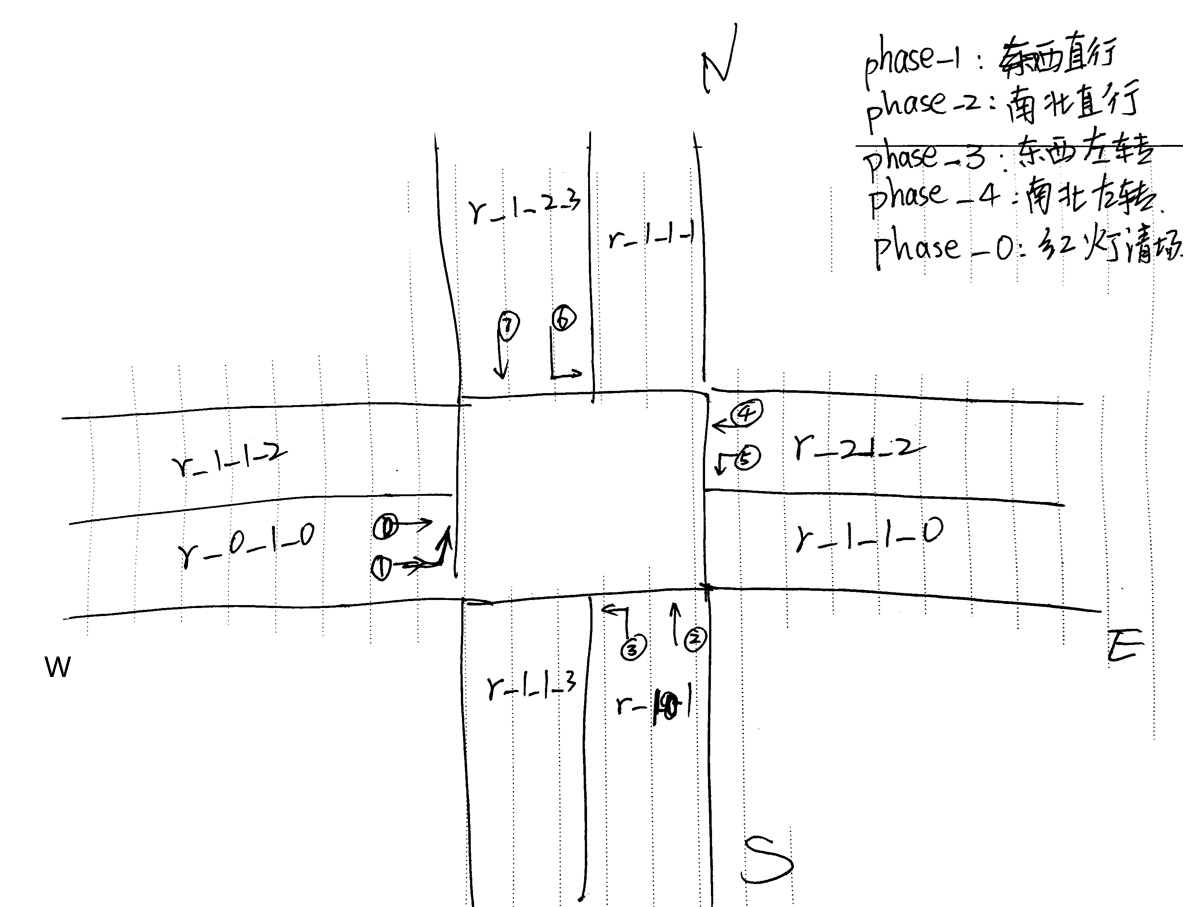 N
phase_1: 东西直行
phase_2: 南北直行
phase_3: 东西左转
phase_4: 南北左转.
phase_0: 红灯清场
r_1_2_3
r_1_1_1
⑦
⑥
④
r_1_1_2
⑤
r_2_1_2
⓪
r_0_1_0
r_1_1_0
①
③
②
W
E
r_1_1_3
S